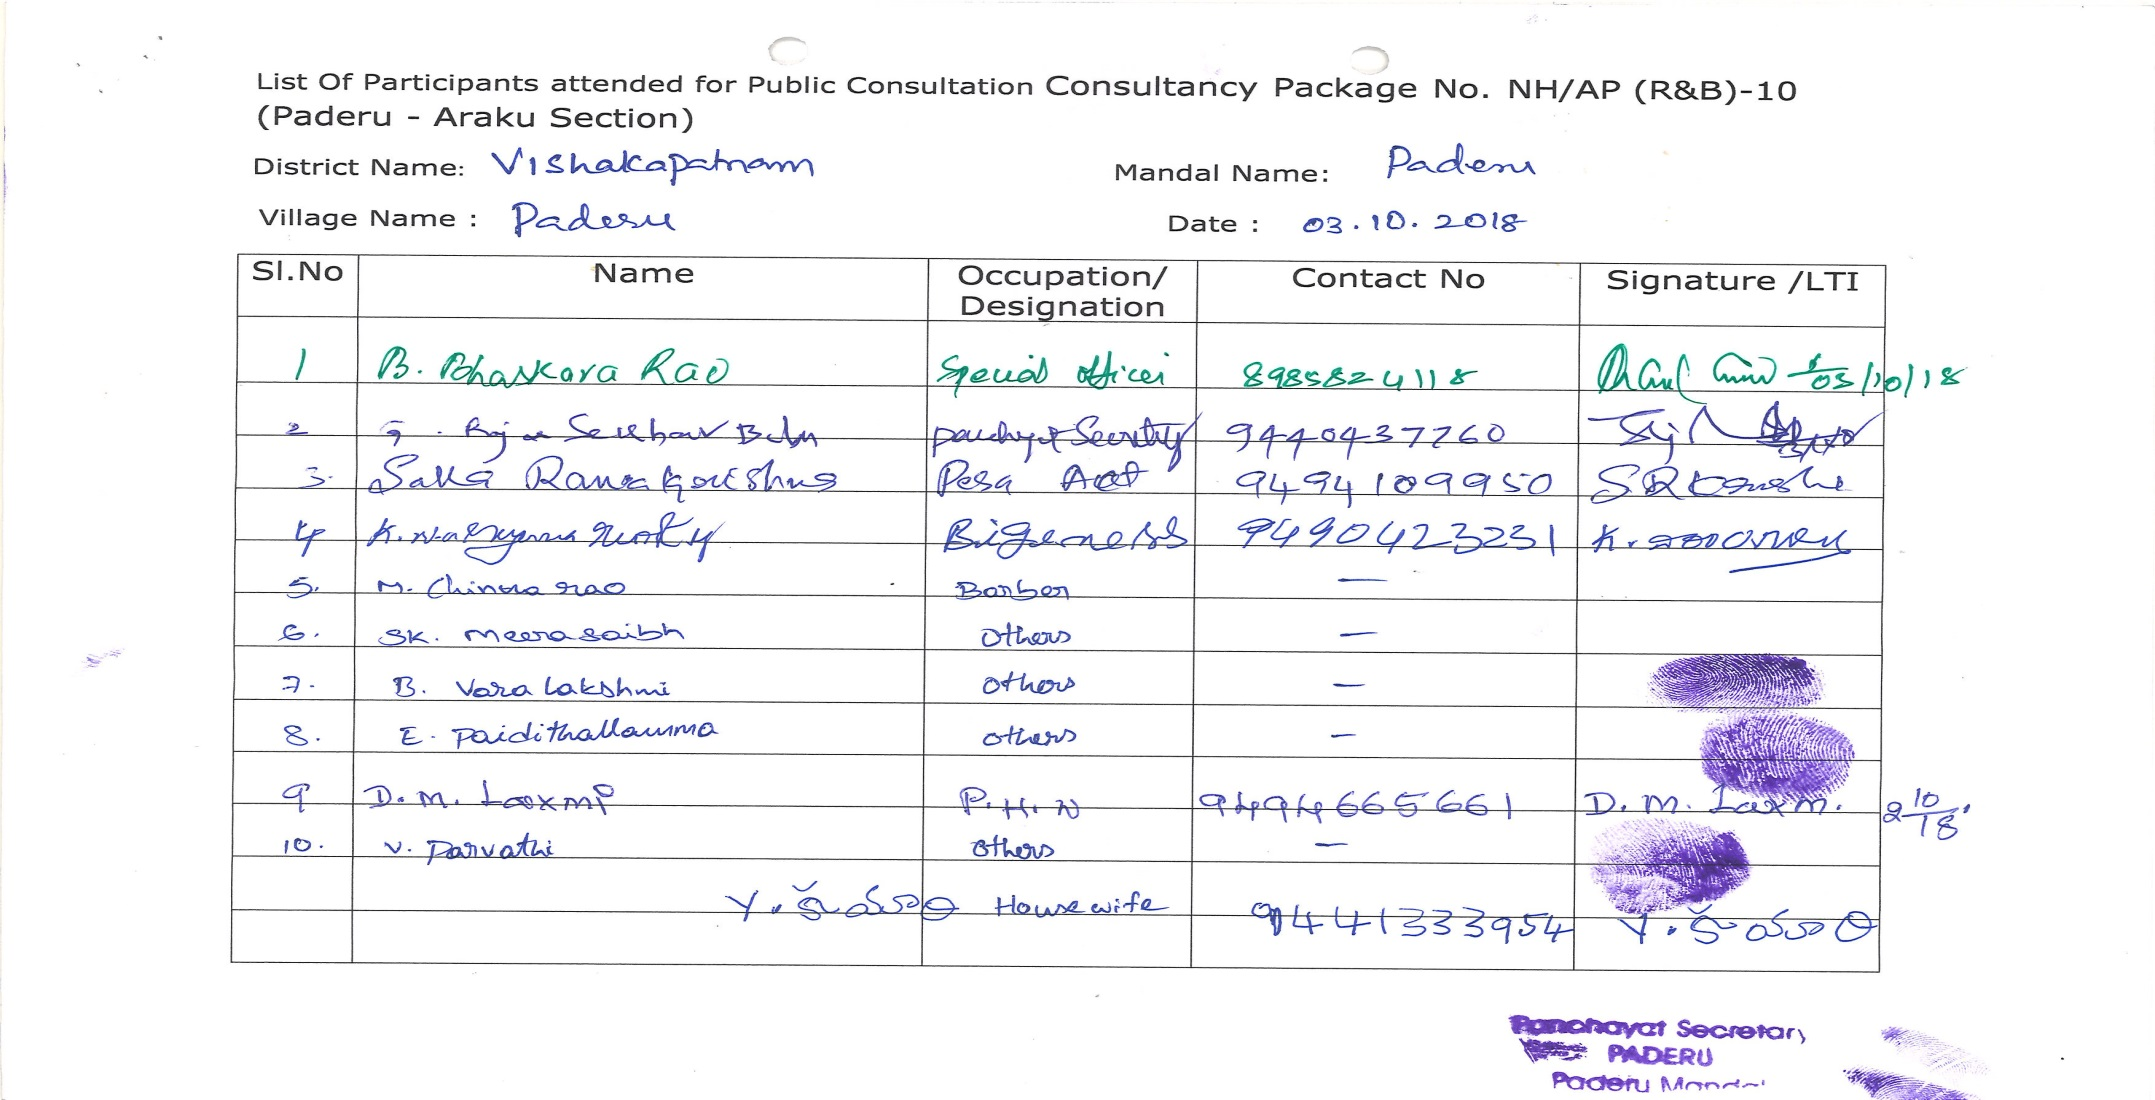 List Of Participants attended for Public Consultation Consultancy Package No. NH/AP (R&B)-10
(Paderu - Araku Section)
District Name: Vishakapatnam Mandal Name: Paderu
Village Name : Paderu Date : 03.10.2018
Sl.No Name Occupation/ Designation Contact No Signature /LTI
1 B. Bhaskara Rao Special officer 8985824118 03/10/18
2 Sekhar Babu 9440437760
3. Saka Rama Krishna Pesa 9494109950
4 K. Bigeness 9490423231 K.
5. M. Chinna rao Barber —
6. SK. Meerasaibh Others —
7. B. Varalakshmi Others —
8. E. Paidithallamma Others —
9 D.M. Laxmi P.H.N 9494665661 D.M. Laxm. 2 10/18
10. V. Parvathi Others —
Y. Housewife 9441333954 Y.
Panchayat Secretary
PADERU
Paderu Mandal